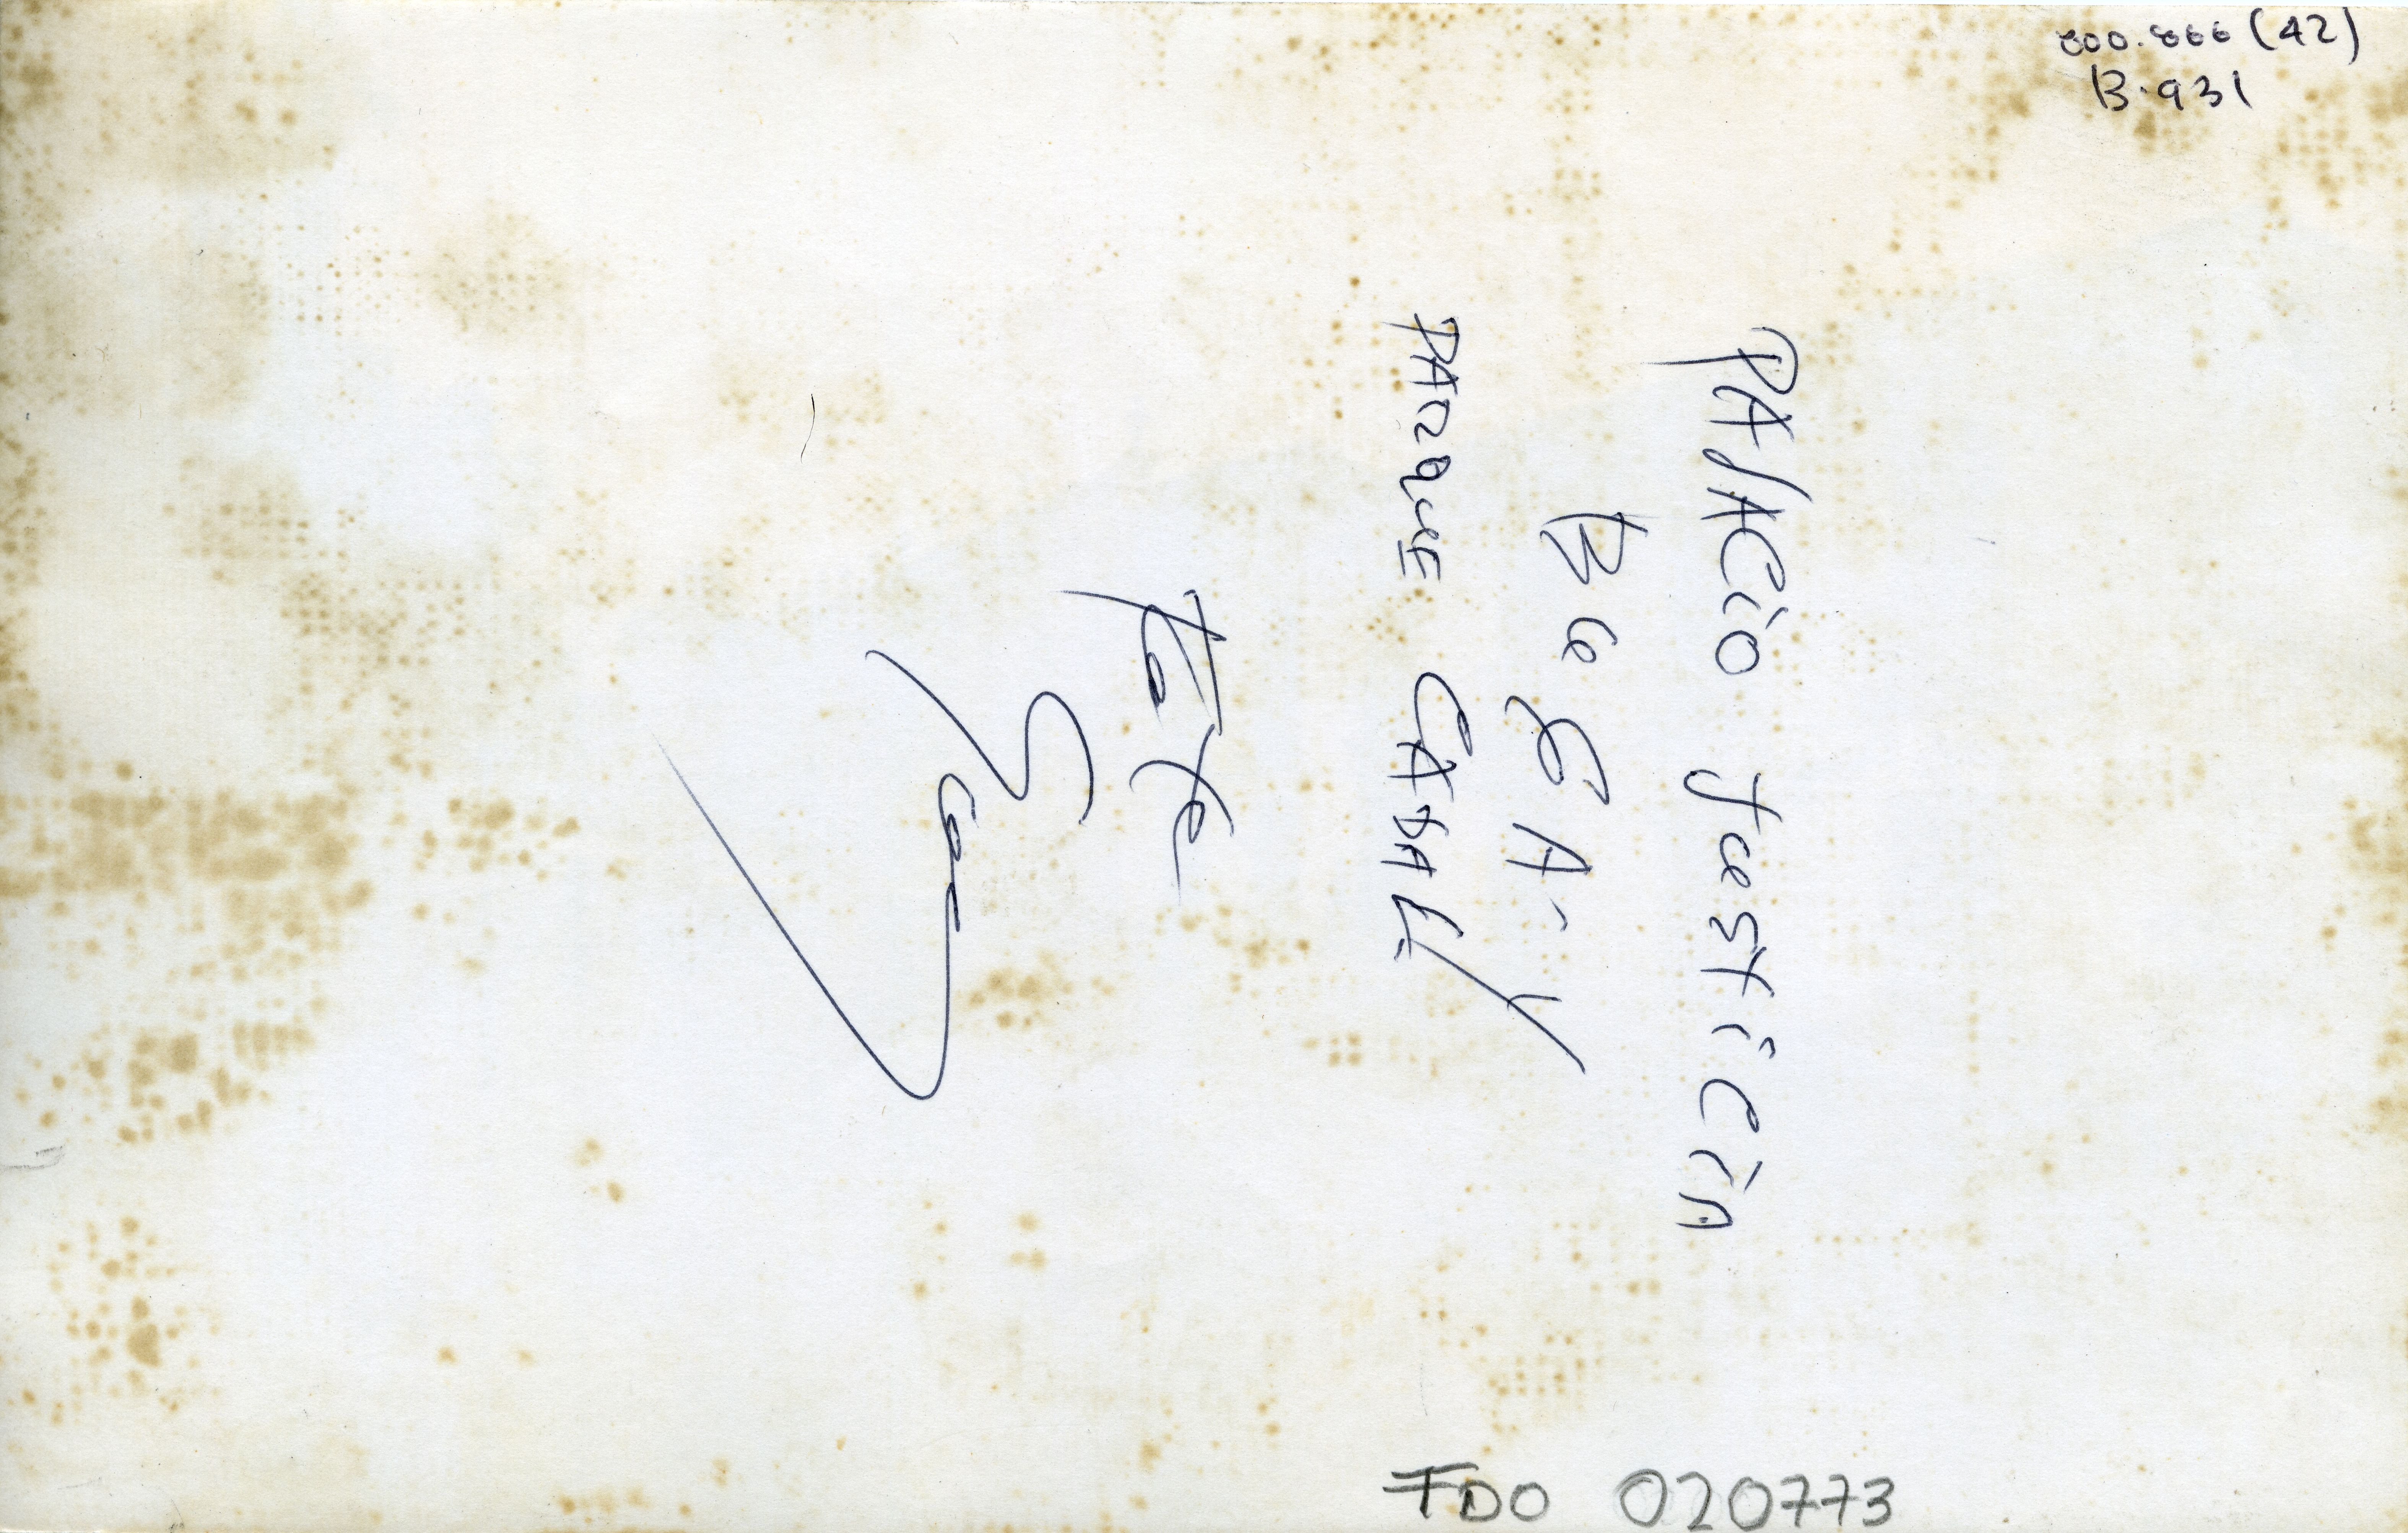 800.866 (42)
B.931
PAlACiO JusticiA
BUGA - Y
PARQUE CABAL
Foto
FDO 020773